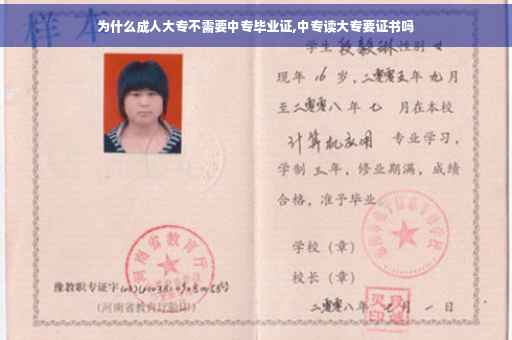 为什么成人大专不需要中专毕业证,中专读大专要证书吗
样本
学生段毅琳性别女
现年16岁,二零零五年九月
至二零零八年七月在本校
计算机应用 专业学习,
学制三年,修业期满,成绩
合格,准予毕业。
学校(章)
校长(章)
二零零八年七月一日
河南省教育厅
豫教职专证字
(河南省教育厅验印)